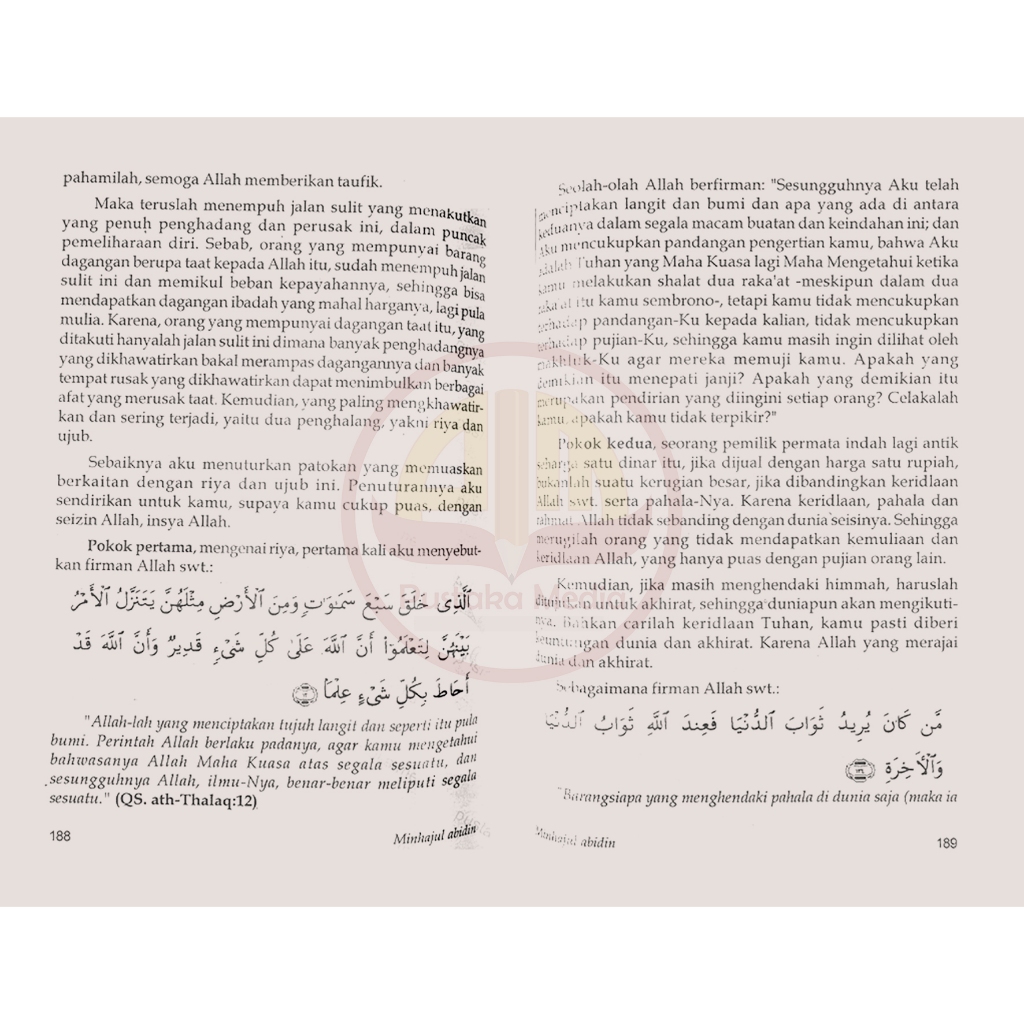 pahamilah, semoga Allah memberikan taufik.
Maka teruslah menempuh jalan sulit yang menakutkan
yang penuh penghadang dan perusak ini, dalam puncak
pemeliharaan diri. Sebab, orang yang mempunyai barang
dagangan berupa taat kepada Allah itu, sudah menempuh jalan
sulit ini dan memikul beban kepayahannya, sehingga bisa
mendapatkan dagangan ibadah yang mahal harganya, lagi pula
mulia. Karena, orang yang mempunyai dagangan taat itu, yang
ditakuti hanyalah jalan sulit ini dimana banyak penghadangnya
yang dikhawatirkan bakal merampas dagangannya dan banyak
tempat rusak yang dikhawatirkan dapat menimbulkan berbagai
afat yang merusak taat. Kemudian, yang paling mengkhawatir-
kan dan sering terjadi, yaitu dua penghalang, yakni riya dan
ujub.
Sebaiknya aku menuturkan patokan yang memuaskan
berkaitan dengan riya dan ujub ini. Penuturannya aku
sendirikan untuk kamu, supaya kamu cukup puas, dengan
seizin Allah, insya Allah.
Pokok pertama, mengenai riya, pertama kali aku menyebut-
kan firman Allah swt.:
الَّذِى خَلَقَ سَبْعَ سَمَٰوَٰتٍ وَمِنَ الْأَرْضِ مِثْلَهُنَّ يَتَنَزَّلُ الْأَمْرُ
بَيْنَهُنَّ لِتَعْلَمُوٓا۟ أَنَّ اللَّهَ عَلَىٰ كُلِّ شَىْءٍ قَدِيرٌ وَأَنَّ اللَّهَ قَدْ
أَحَاطَ بِكُلِّ شَىْءٍ عِلْمًا ﴿١٢﴾
"Allah-lah yang menciptakan tujuh langit dan seperti itu pula
bumi. Perintah Allah berlaku padanya, agar kamu mengetahui
bahwasanya Allah Maha Kuasa atas segala sesuatu, dan
sesungguhnya Allah, ilmu-Nya, benar-benar meliputi segala
sesuatu." (QS. ath-Thalaq:12)
188
Minhajul abidin
Seolah-olah Allah berfirman: "Sesungguhnya Aku telah
menciptakan langit dan bumi dan apa yang ada di antara
keduanya dalam segala macam buatan dan keindahan ini; dan
Aku mencukupkan pandangan pengertian kamu, bahwa Aku
adalah Tuhan yang Maha Kuasa lagi Maha Mengetahui ketika
kamu melakukan shalat dua raka'at -meskipun dalam dua
raka'at itu kamu sembrono-, tetapi kamu tidak mencukupkan
terhadap pandangan-Ku kepada kalian, tidak mencukupkan
terhadap pujian-Ku, sehingga kamu masih ingin dilihat oleh
makhluk-Ku agar mereka memuji kamu. Apakah yang
demikian itu menepati janji? Apakah yang demikian itu
merupakan pendirian yang diingini setiap orang? Celakalah
kamu, apakah kamu tidak terpikir?"
Pokok kedua, seorang pemilik permata indah lagi antik
seharga satu dinar itu, jika dijual dengan harga satu rupiah,
bukanlah suatu kerugian besar, jika dibandingkan keridlaan
Allah swt. serta pahala-Nya. Karena keridlaan, pahala dan
rahmat Allah tidak sebanding dengan dunia seisinya. Sehingga
merugilah orang yang tidak mendapatkan kemuliaan dan
keridlaan Allah, yang hanya puas dengan pujian orang lain.
Kemudian, jika masih menghendaki himmah, haruslah
ditujukan untuk akhirat, sehingga duniapun akan mengikuti-
nya. Bahkan carilah keridlaan Tuhan, kamu pasti diberi
keuntungan dunia dan akhirat. Karena Allah yang merajai
dunia dan akhirat.
Sebagaimana firman Allah swt.:
مَّن كَانَ يُرِيدُ ثَوَابَ الدُّنْيَا فَعِندَ اللَّهِ ثَوَابُ الدُّنْيَا
وَالْآخِرَةِ ﴿١٣٤﴾
"Barangsiapa yang menghendaki pahala di dunia saja (maka ia
Minhajul abidin
189
Pustaka Media